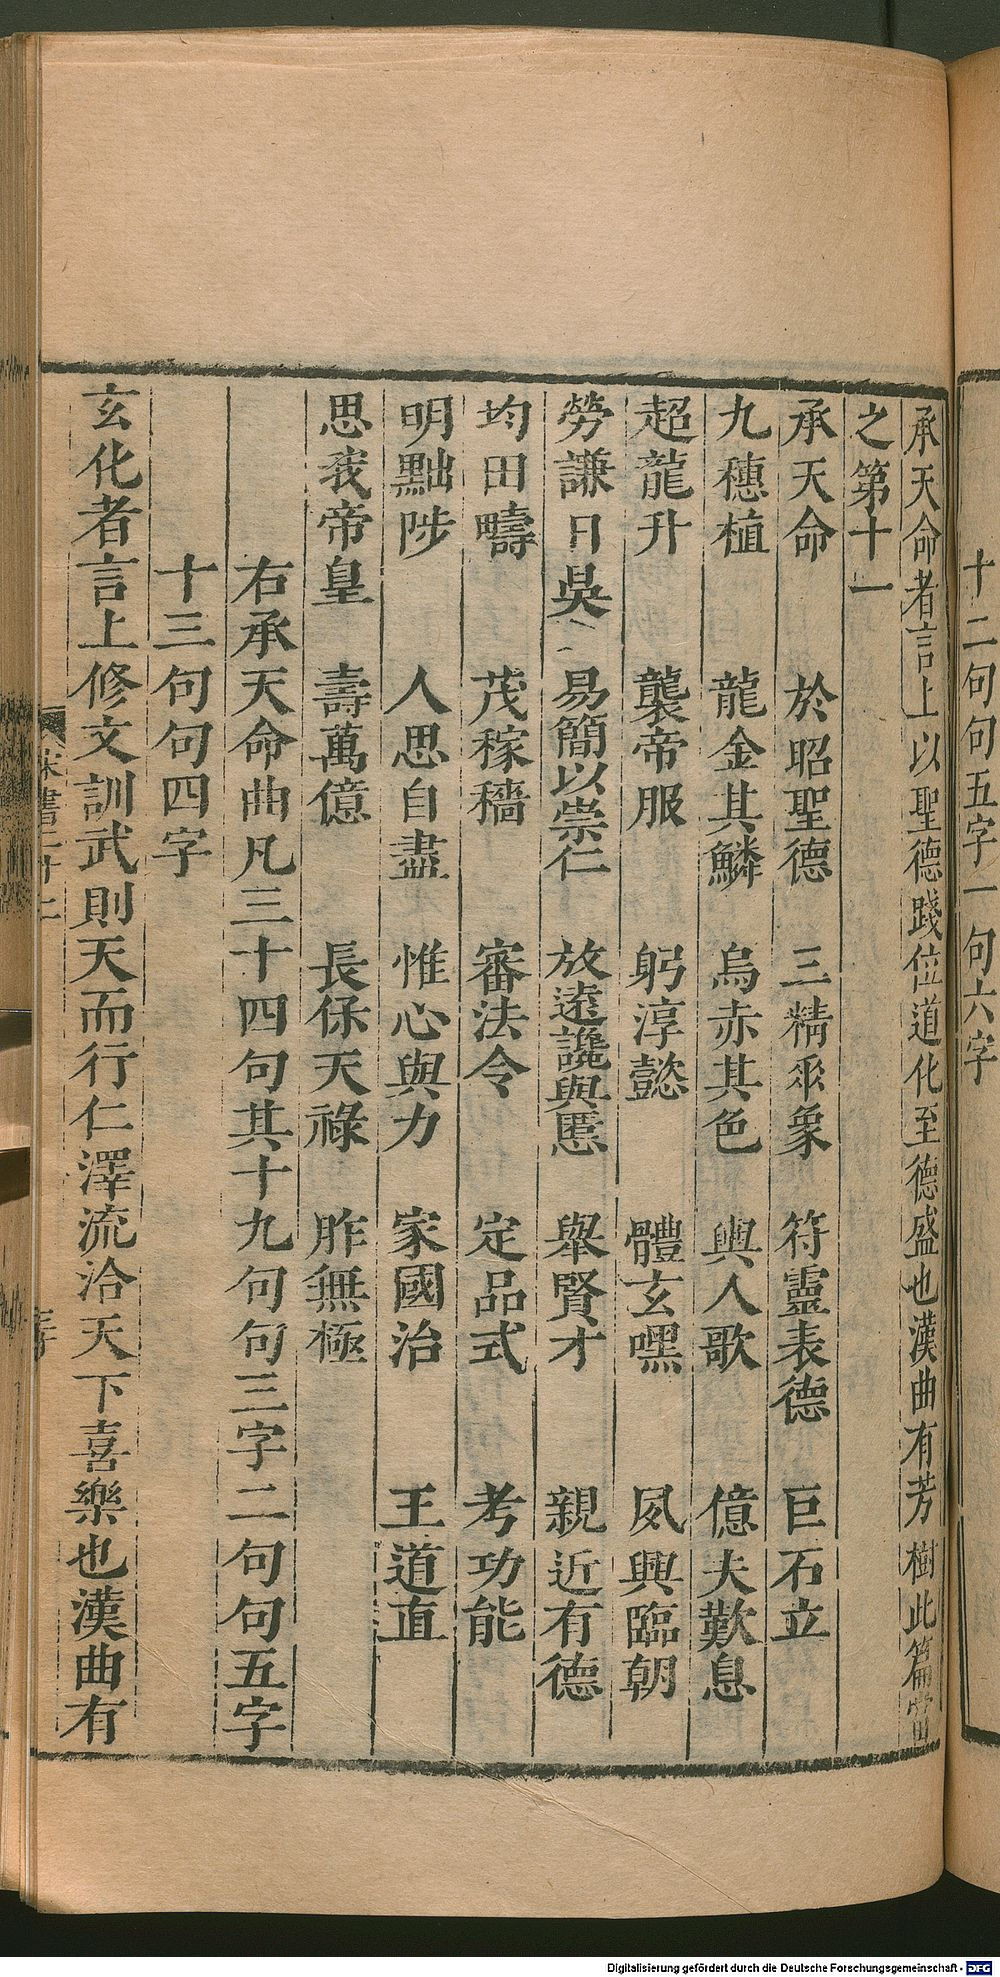 十二句句五字一句六字
承天命者言上以聖德踐位道化至德盛也漢曲有芳樹此篇當
之第十一
承天命　於昭聖德　三精垂象　符靈表德　巨石立
九穗植　龍金其鱗　烏赤其色　輿人歌　億夫歎息
超龍升　襲帝服　躬淳懿　體玄嘿　夙興臨朝
勞謙日昃　易簡以崇仁　放遠讒與慝　舉賢才　親近有德
均田疇　茂稼穡　審法令　定品式　考功能
明黜陟　人思自盡　惟心與力　家國治　王道直
思我帝皇　壽萬億　長保天祿　胙無極
右承天命曲凡三十四句其十九句句三字二句句五字
十三句句四字
玄化者言上修文訓武則天而行仁澤流洽天下喜樂也漢曲有
宋書二十二
Digitalisierung gefördert durch die Deutsche Forschungsgemeinschaft - DFG